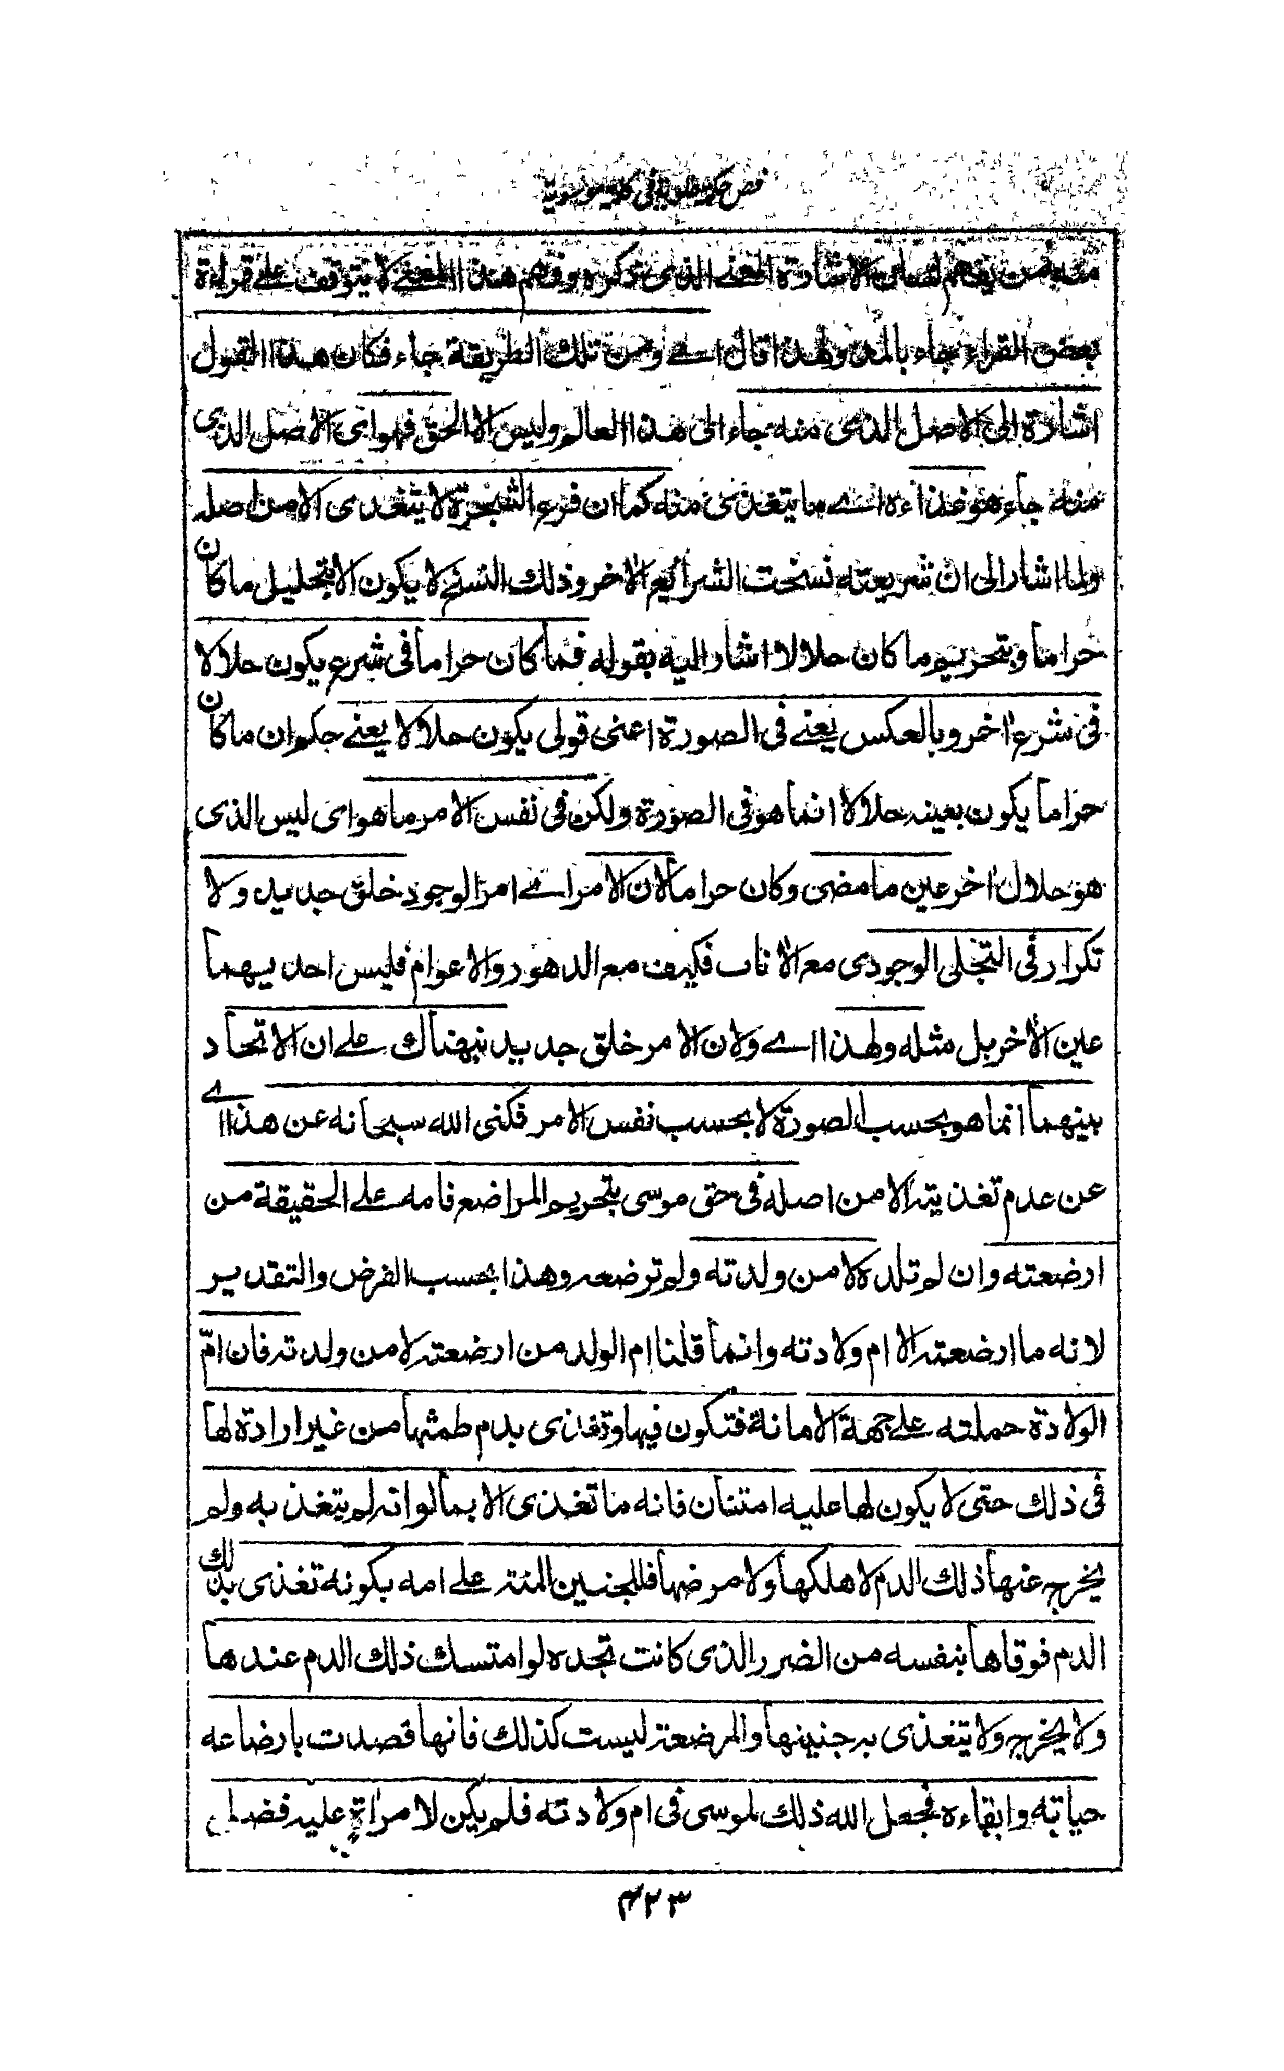 فص حكمة علوية في كلمة موسوية
منه فمن يفهم لسان الاشارة المعنى الذى نذكره وفهم هذا المعنے لا يتوقف علے قراءة
بعض القراء جاء بالمد ولهذا قال اے ومن تلك الطريقة جاء فكان هذا القول
اشارة الى الاصل الذى منه جاء الى هذا العالم وليس الا الحق فهو اى الاصل الذى
منه جاء هو غذاءه اے ما يتغذى منه كما ان فرع الشجرة لا يتغذى الا من اصله
ولما اشار الى ان شريعته نسخت الشرائع الاخر وذلك النسخ لا يكون الا بتحليل ما كان
حراما وبتحريم ما كان حلالا اشار اليه بقوله فما كان حراما فى شرع يكون حلالا
فى شرع اخر وبالعكس يعنے فى الصورة اعنى قولى يكون حلالا يعنے حكم ان ما كان
حراما يكون بعينه حلالا انما هو فى الصورة ولكن فى نفس الامر ما هو اى ليس الذى
هو حلال اخر عين ما مضى وكان حراما لان الامر اے امر الوجود خلق جديد ولا
تكرار فى التجلى الوجودى مع الاناب فكيف مع الدهور والاعوام فليس احديهما
عين الاخر بل مثله ولهذا اے ولان الامر خلق جديد نبهناك علے ان الاتحاد
بينهما انما هو بحسب الصورة لا بحسب نفس الامر فكنى الله سبحانه عن هذا اے
عن عدم تغذيته الا من اصله فى حق موسى بتحريم المراضع فامه علے الحقيقة من
ارضعته وان لم تلده لا من ولدته ولم ترضعه وهذا بحسب الفرض والتقدير
لانه ما ارضعته الا ام ولادته وانما قلنا ام الولد من ارضعته لا من ولدته فان امّ
الولادة حملته علے جهة الامانة فتكون فيها وتغذى بدم طمثها من غير ارادة لها
فى ذلك حتى لا يكون لها عليه امتنان فانه ما تغذى الا بما لو انه لم يتغذ به ولم
يخرج عنها ذلك الدم لاهلكها ولامرضها فللجنين المنة علے امه بكونه تغذى بذلك
الدم فوقاها بنفسه من الضرر الذى كانت تجده لو امتسك ذلك الدم عندها
ولا يخرج ولا يتغذى به جنينها والمرضعة ليست كذلك فانها قصدت بارضاعه
حياته وابقاءه فجعل الله ذلك لموسى فى ام ولادته فلم يكن لامراة عليه فضل
۴۲۳